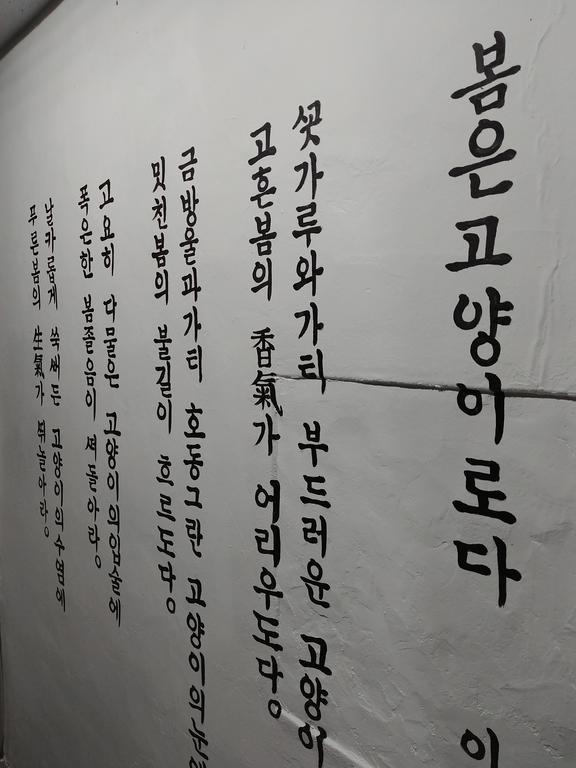 봄은고양이로다
이
ᄭᅩᆺ가루와가티 부드러운 고양이
고흔봄의 香氣가 어리우도다。
금방울과가티 호동그란 고양이의눈
밋친봄의 불길이 흐르도다。
고요히 다물은 고양이의입술에
폭은한 봄졸음이 ᄯᅥ돌아라。
날카롭게 쑥ᄲᅥ든 고양이의수염에
푸른봄의 生氣가 ᄯᅱ놀아라。